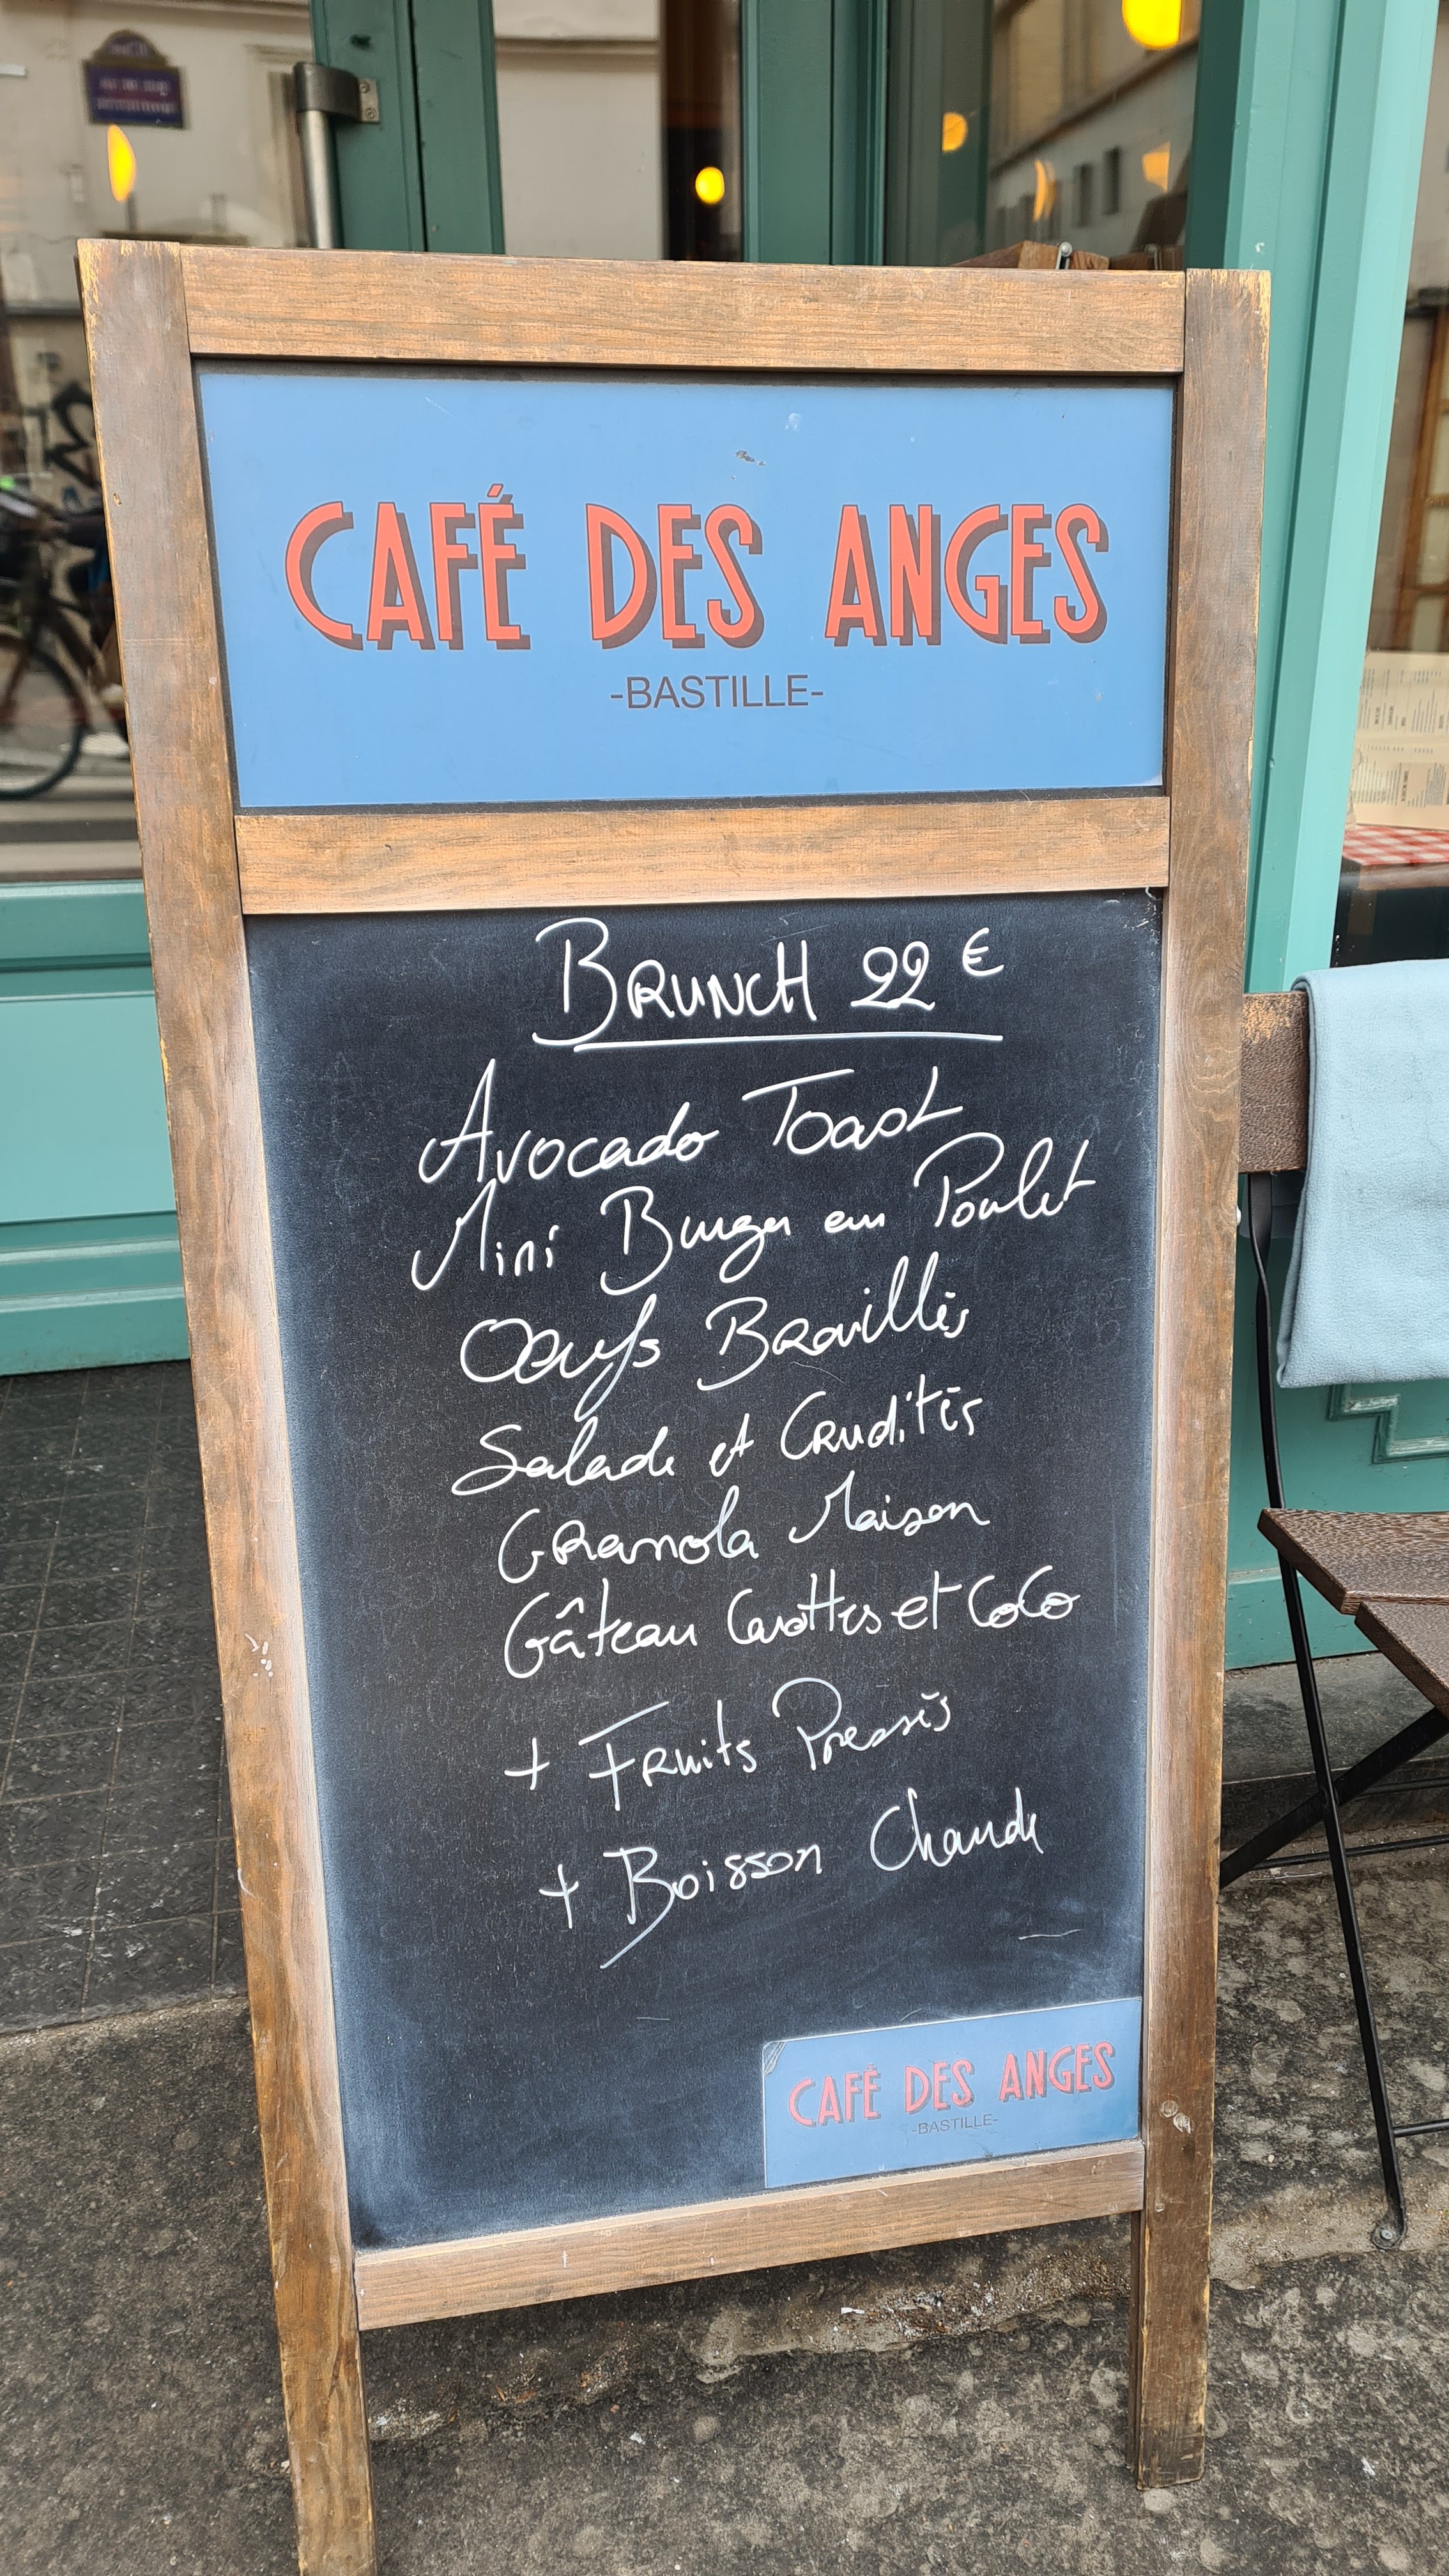 CAFÉ DES ANGES
-BASTILLE-
BRUNCH 22 €
Avocado Toast
Mini Burger au Poulet
Oeufs Brouillés
Salade et Crudités
Granola Maison
Gâteau Carottes et CoCo
+ Fruits Pressés
+ Boisson Chaude
CAFÉ DES ANGES
-BASTILLE-